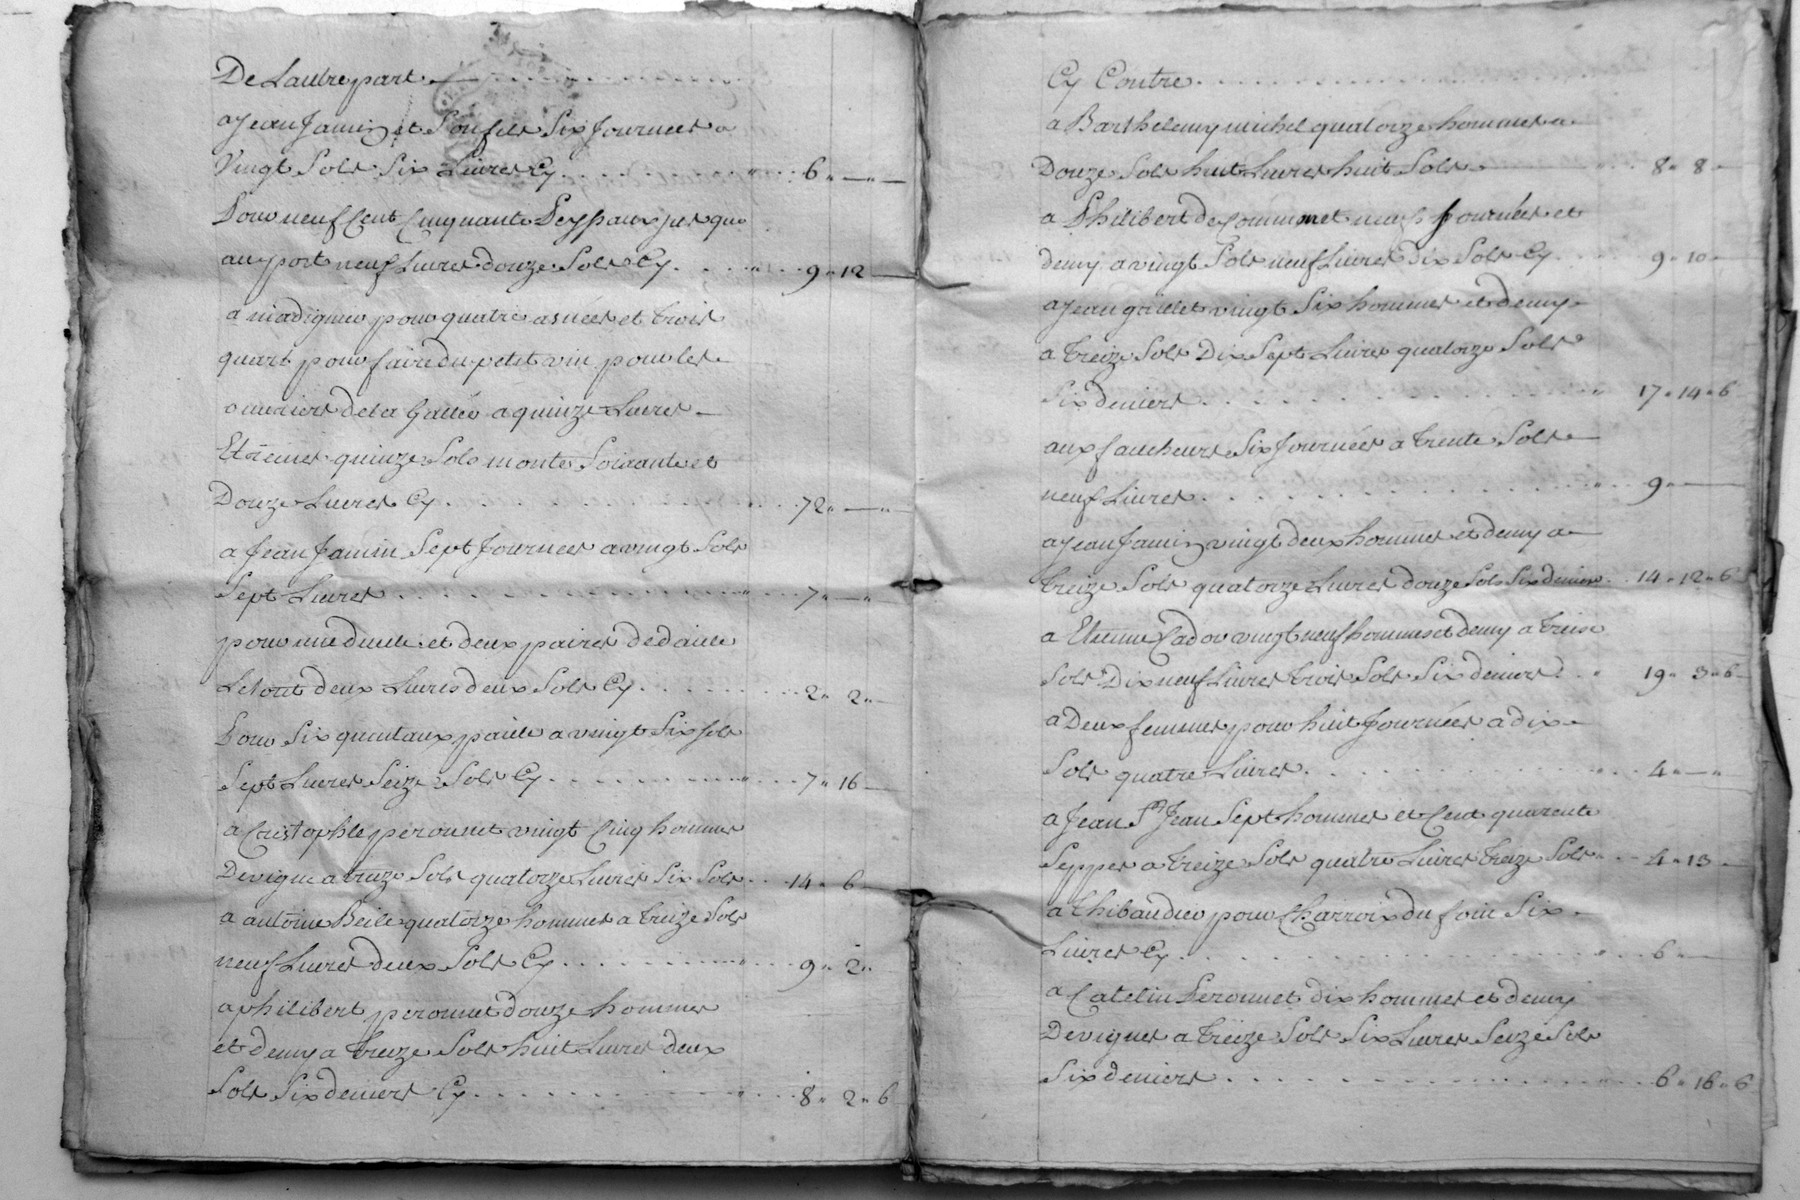 De Lautre part
a Jean Jamin et Son fils Six Journées a
Vingt Sols Six Livres Cy 6 " — " —
Pour neuf Cent Cinquante Peysseaux jusque
au port neuf Livres douze Sols Cy 9 " 12 —
a madigneu pour quatre asnées et trois
quart pour faire du petit vin pour les
ouvriers de la a quinze Livres
Et quinze Sols monte Soixante et
Douze Livres Cy 72 " — " —
a Jean Jamin Sept Journees a vingt Sols
Sept Livres 7 " — "
pour une et deux paires
Le tout deux Livres deux Sols Cy 2 " 2 " —
Pour Six quintaux paille a vingt Six sols
Sept Livres Seize Sols Cy 7 " 16 —
a Cristophle peronnet vingt Cinq hommes
De vigne a treize Sols quatorze Livres Six Sols 14 " 6 —
a antoine Beile quatorze hommes a treize Sols
neuf Livres deux Sols Cy 9 " 2 " —
a philibert peronnet douze hommes
et demy a treize Sols huit Livres deux
Sols Six deniers Cy 8 " 2 " 6
Cy Contre
a Barthelemy michel quatorze hommes a
Douze Sols huit Livres huit Sols 8 " 8 —
a Philibert deCommet neuf Journées et
demy a vingt Sols neuf Livres Dix Sols Cy 9 " 10 —
a Jean grillet vingt Six hommes et demy
a treize Sols Dix Sept Livres quatorze Sols
Six deniers 17 " 14 " 6
aux faucheurs Six Journées a trente Sols
neuf Livres 9 " —
a Jean Jamin vingt deux hommes et demy a
treize Sols quatorze Livres douze Sols Six deniers 14 " 12 " 6
a Etienne Cador vingt neuf hommes et demy a treise
Sols Dix neuf Livres trois Sols Six deniers 19 " 3 " 6
a Deux femmes pour huit Journées a dix
Sols quatre Livres 4 " — "
a Jean St Jean Sept hommes et Cent quarente
Seppes a treize Sols quatre Livres treize Sols 4 " 13 —
a thibaudier pour Charroix du foin Six
Livres Cy 6 " —
a Catelin Peronnet dix hommes et demy
De vignes a treize Sols Six Livres Seize Sols
Six deniers 6 " 16 " 6